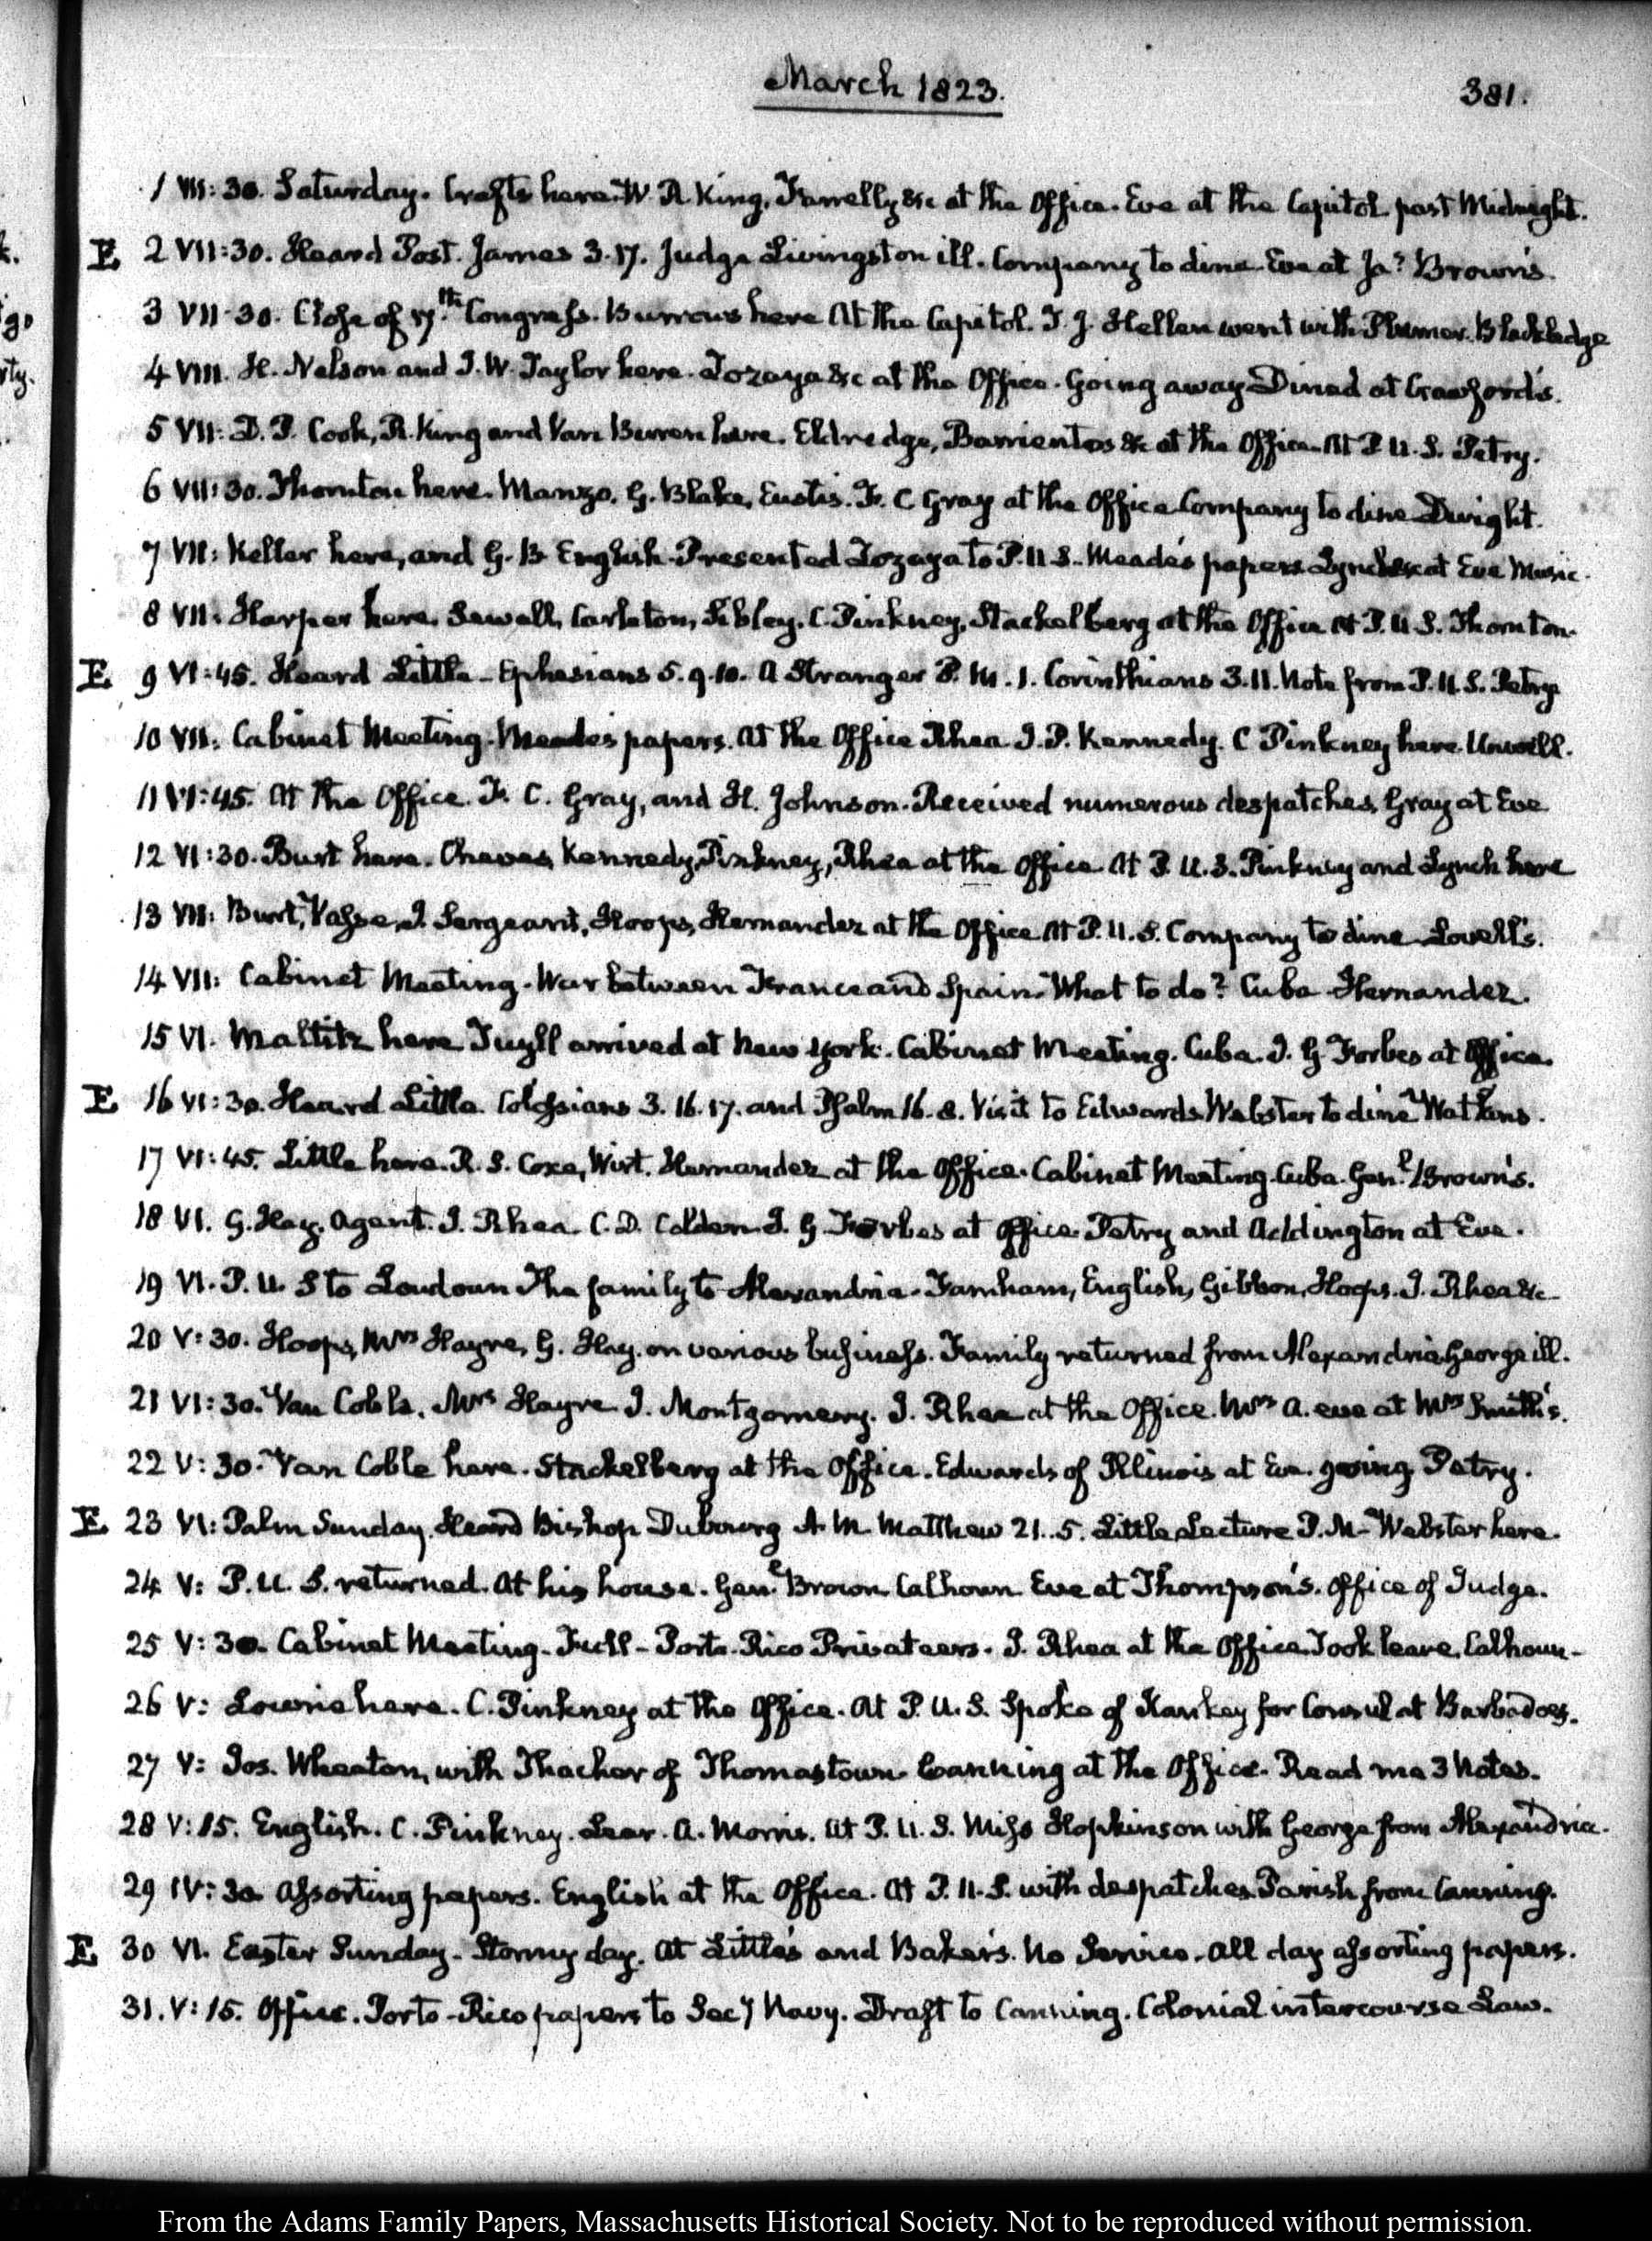 March 1823.
381.
1 VII: 30. Saturday. Crafts here. W. R. King, Farrelly &c at the Office. Eve at the Capitol past Midnight.
E 2 VII:30. Heard Post. James 3.17. Judge Livingston ill. Company to dine. Eve at Jas. Brown's.
3 VII.30. Close of 17th. Congress. Burrows here At the Capitol. T. J. Hellen went with Plumer. Blackledge
4 VIII. H. Nelson and J. W. Taylor here. Lozaya &c at the Office. Going away Dined at Crawford's.
5 VII: D. P. Cook, R. King and Van Buren here. Eldredge, Barrientos &c at the Office. At P. U. S. Petry.
6 VII:30. Thornton here. Manzo. G. Blake, Eustis. F. C Gray at the Office Company to dine Dwight.
7 VII: Keller here, and G. B English. Presented Lozaya to P. U S. Meade's papers Lynch &c at Eve Music.
8 VII. Harper here. Sewall, Carleton, Sibley. C. Pinkney, Stackelberg at the Office At P. U. S. Thornton.
E 9 VI:45. Heard Little. Ephesians 5. 9.10. A Stranger P. M. 1. Corinthians 3.11. Note from P. U. S. Petry
10 VII. Cabinet Meeting. Meade's papers. At the Office Rhea J. P. Kennedy. C Pinkney here. Unwell.
11 VI:45. At the Office. F. C. Gray, and H. Johnson. Received numerous despatches, Gray at Eve
12 VI:30. Burt here. Cheves, Kennedy, Pinkney, Rhea at the Office. At P. U. S. Pinkney and Lynch here
13 VII: Burt, Vasse, J. Sergeant, Hoops, Hernandez at the Office At P. U. S. Company to dine Lovell's.
14 VII: Cabinet Meeting. War between France and Spain. What to do? Cuba Hernandez.
15 VI. Maltitz here Tuyll arrived at New York. Cabinet Meeting. Cuba. J. G Forbes at Office.
E 16 VI:30. Heard Little. Colossians 3. 16. 17. and Psalm 16. 8. Visit to Edwards. Webster to dine Watkins.
17 VI:45. Little here. R. S. Coxe, Wirt. Hernandez at the Office. Cabinet Meeting. Cuba. Genl. Brown's.
18 VI. G. Hay. Agent. J. Rhea. C. D. Colden. J. G. Forbes at Office. Petry and Addington at Eve.
19 VI. P. U. S to Loudoun The family to Alexandria. Farnham, English, Gibbon, Hoops. J. Rhea &c
20 V: 30. Hoops, Mrs Hayne, G. Hay. on various business. Family returned from Alexandria George ill.
21 VI: 30. Van Coble. Mrs Hayne J. Montgomery. J. Rhea at the Office. Mrs A. eve at Mrs Smith's.
22 V: 30. Van Coble here. Stackelberg at the Office. Edwards of Illinois at Eve. going. Petry.
E 23 VI: Palm Sunday. Heard Bishop Dubourg A. M. Matthew 21..5. Little Lecture P. M. Webster here.
24 V: P. U. S. returned. At his house. Genl Brown Calhoun Eve at Thompson's. Office of Judge.
25 V: 30. Cabinet Meeting. Tuyll – Porto. Rico Privateers. J. Rhea at the Office Took leave. Calhoun.
26 V: Lowrie here. C. Pinkney at the Office. At P. U. S. Spoke of Kankey for Consul at Barbadoes.
27 V: Jos. Wheaton, with Thacher of Thomastown. Canning at the Office. Read me 3 Notes.
28 V: 15. English. C. Pinkney. Lear. A. Morris. At P. U. S. Miss Hopkinson with George from Alexandria.
29 IV: 30. assorting papers. English at the Office. At P. U. S. with despatches. Parish from Canning.
E 30 VI. Easter Sunday. Stormy day. At Little's and Baker's. No Service. All day assorting papers.
31. V: 15. Office. Porto-Rico papers to Secy Navy. Draft to Canning. Colonial intercourse Law.
From the Adams Family Papers, Massachusetts Historical Society. Not to be reproduced without permission.